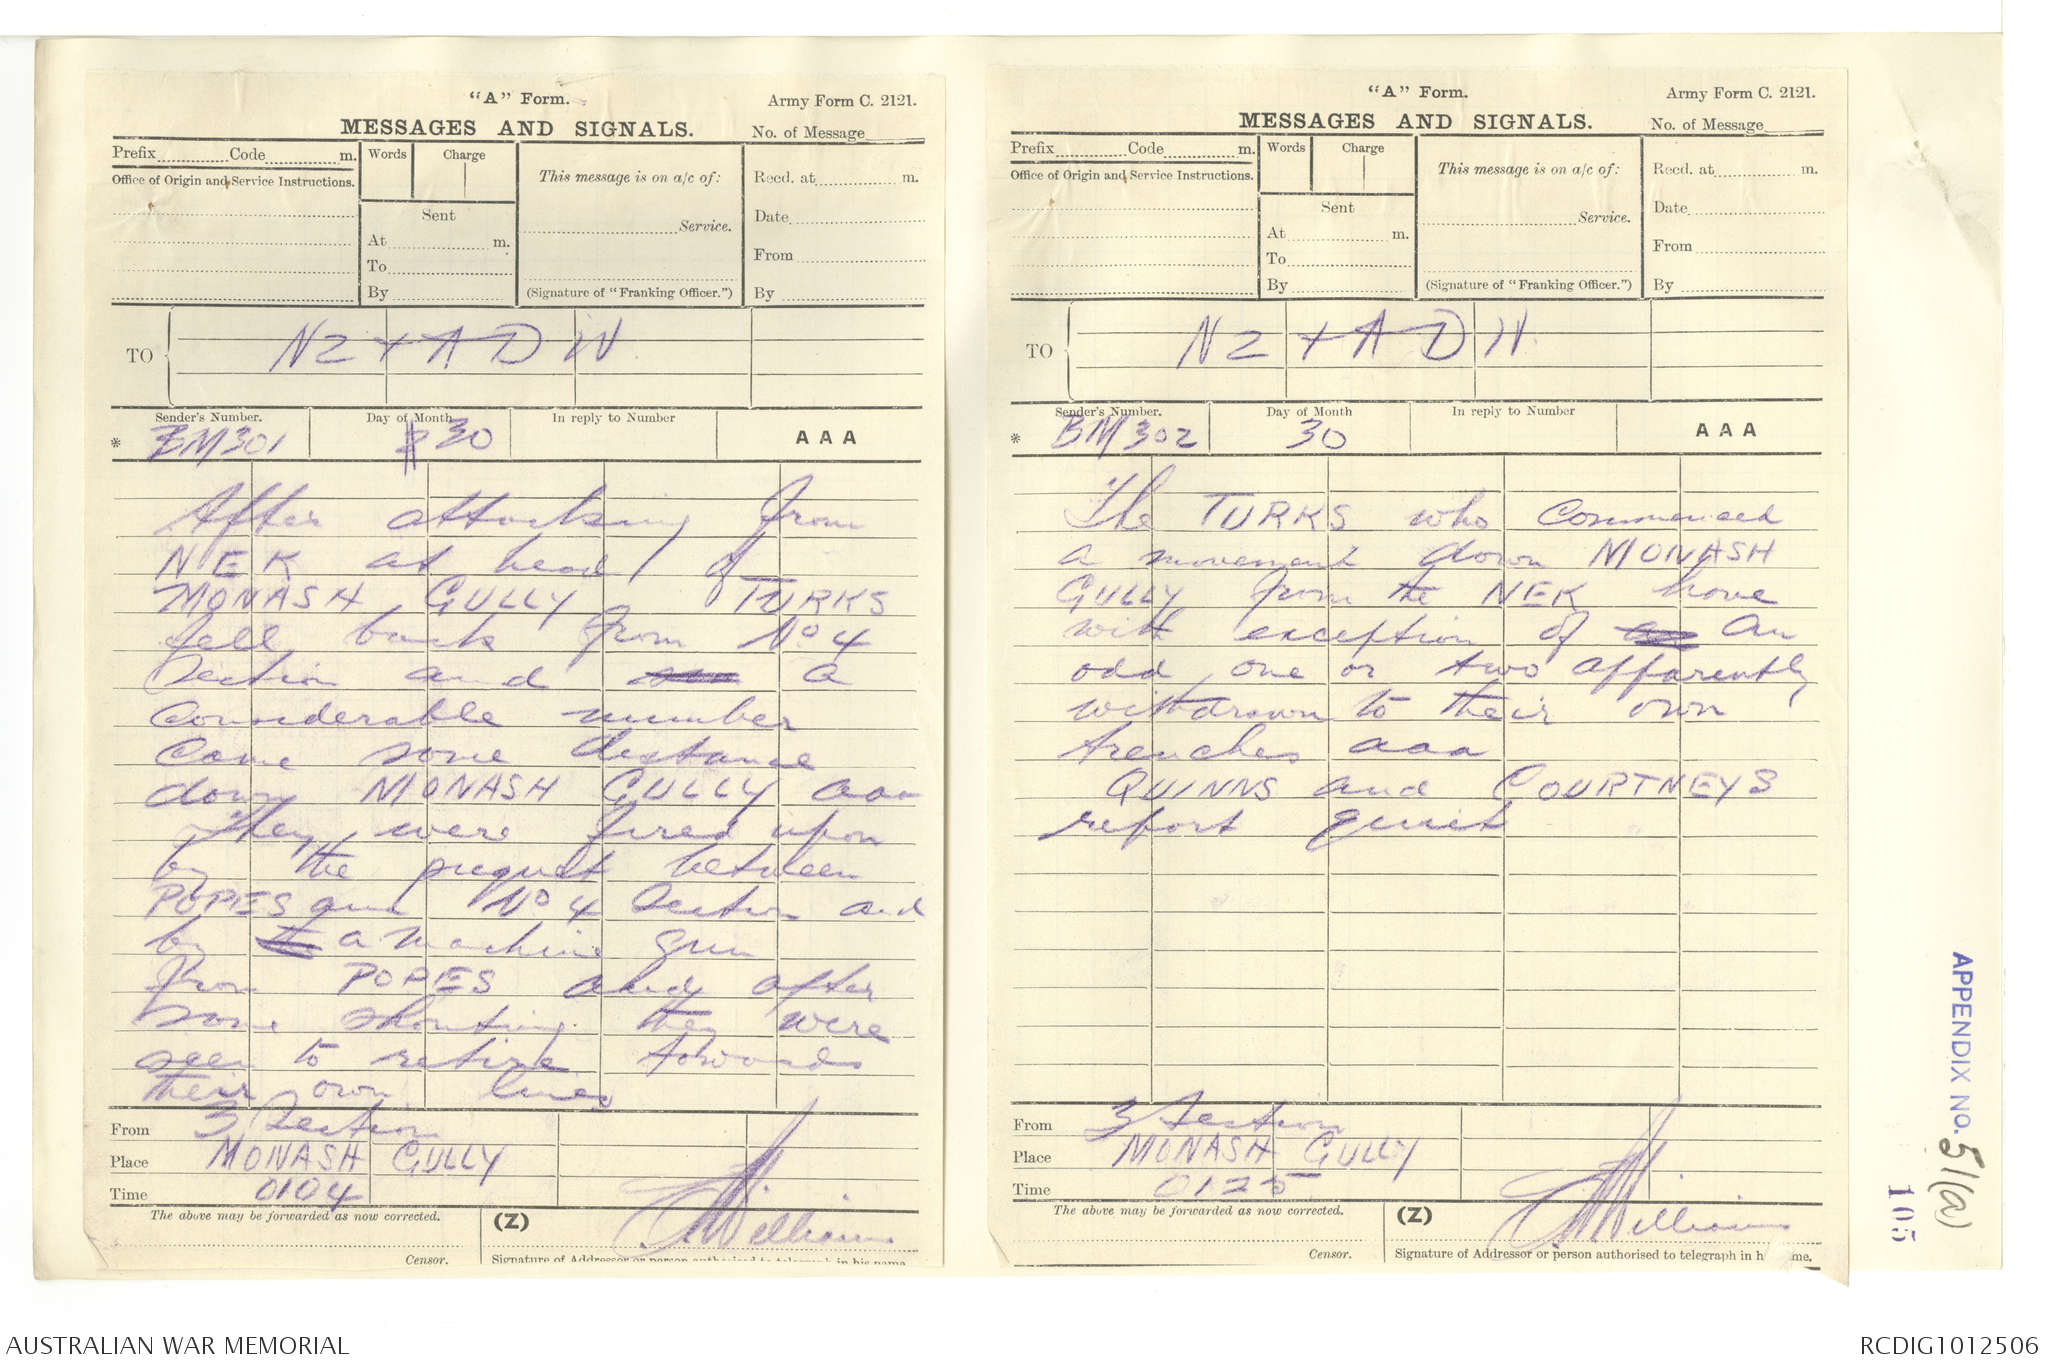 "A" Form.
Army Form C. 2121.
MESSAGES AND SIGNALS.
No. of Message
Prefix Code m.
Words
Charge
This message is on a/c of:
Recd. at m.
Office of Origin and Service Instructions.
Sent
Service.
Date
At m.
From
To
By
(Signature of "Franking Officer.")
By
TO
NZ + A DIV
Sender's Number.
Day of Month
In reply to Number
AAA
* BM301
30
After attacking from
NEK at head / of
MONASH GULLY TURKS
fell back from No 4
Section and a
considerable number
came some distance
down MONASH GULLY aaa
They were fired upon
by the picquet between
POPES and No 4 Section and
by a machine gun
from POPES and after
some shouting they were
seen to retire towards
their own lines
From 3 Section
Place MONASH GULLY
Time 0104
The above may be forwarded as now corrected.
(Z)
Williams
Censor.
Signature of Addressor or person authorised to telegraph in his name
"A" Form.
Army Form C. 2121.
MESSAGES AND SIGNALS.
No. of Message
Prefix Code m.
Words
Charge
This message is on a/c of:
Recd. at m.
Office of Origin and Service Instructions.
Sent
Service.
Date
At m.
From
To
By
(Signature of "Franking Officer.")
By
TO
NZ + A DIV
Sender's Number.
Day of Month
In reply to Number
AAA
* BM302
30
The TURKS who commenced
a movement down MONASH
GULLY from the NEK have
with exception of an
odd one or two apparently
withdrawn to their own
trenches aaa
QUINNS and COURTNEYS
report quiet
From 3 Section
Place MONASH GULLY
Time 0125
The above may be forwarded as now corrected.
(Z)
Williams
Censor.
Signature of Addressor or person authorised to telegraph in h me.
APPENDIX NO. 51(a)
105
AUSTRALIAN WAR MEMORIAL
RCDIG1012506